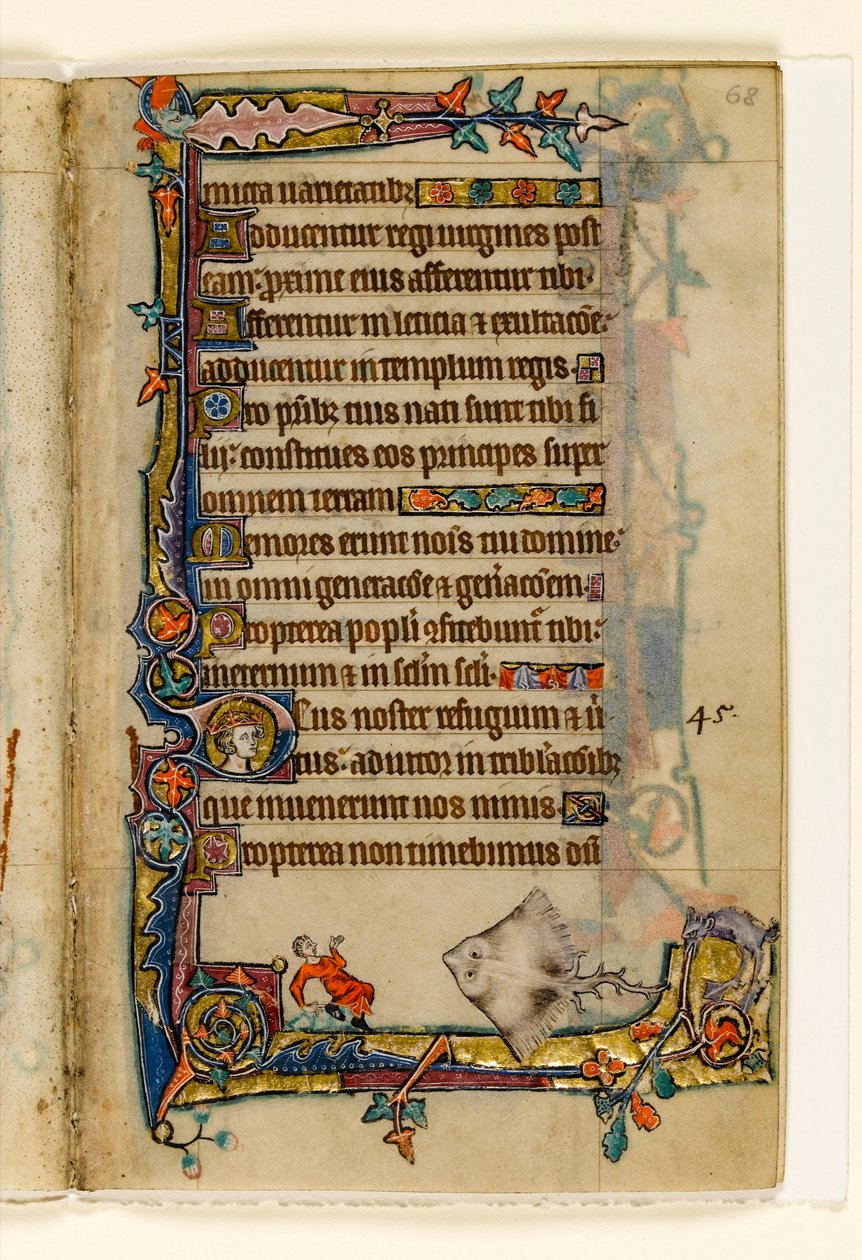 68
micta uarietatibȝ
Adducentur regi uirgines post
eam: ꝓxime eius afferentur tibi.
Afferentur in leticia ⁊ exultac̄oe:
adducentur in templum regis.
Pro pr̄ibȝ tuis nati sunt tibi fi
lij: constitues eos principes super
omnem terram
Memores erunt noīs tui domine:
in omni generac̄oe ⁊ gen̄ac̄oem.
Propterea popl̄i ꝯfitebunt̄ tibi:
in eternum ⁊ in sclm̄ scl̄i.
Deus noster refugium ⁊ uir
45.
tus: adiutor in tribl̄ac̄oibȝ
que inuenerunt nos nimis.
Propterea non timebimus dū